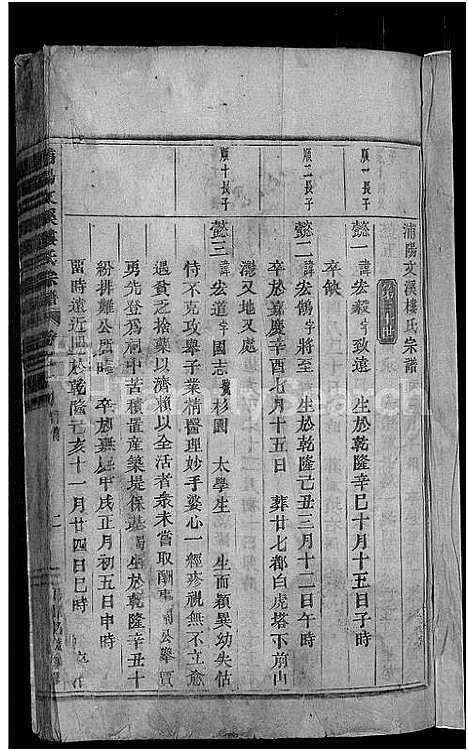 浦陽文溪樓氏宗譜
順一長子
懿一 諱宏毅 字致遠 生於乾隆辛巳十月十五日子時
卒缺
順二長子
懿二 諱宏鵠 字將至 生於乾隆己丑三月十二日午時
卒於嘉慶辛酉七月十五日 葬廿七都白虎塔下前山
灣又地又處
順十長子
懿三 諱宏道 字國志 號杉園 太學生 生而穎異幼失怙
恃不克攻舉子業精醫理妙手婆心一經疹視無不立愈
遇貧乏之拾藥以濟賴以全活者衆未當取酬 公舉賓
勇先登爲祠中苦積置產築堤保 生於乾隆辛丑十
紛排難公 時 卒於 甲戌正月初五日申時
酉時遠近 於乾隆己亥十一月廿四日巳時
浦陽文溪樓氏宗譜